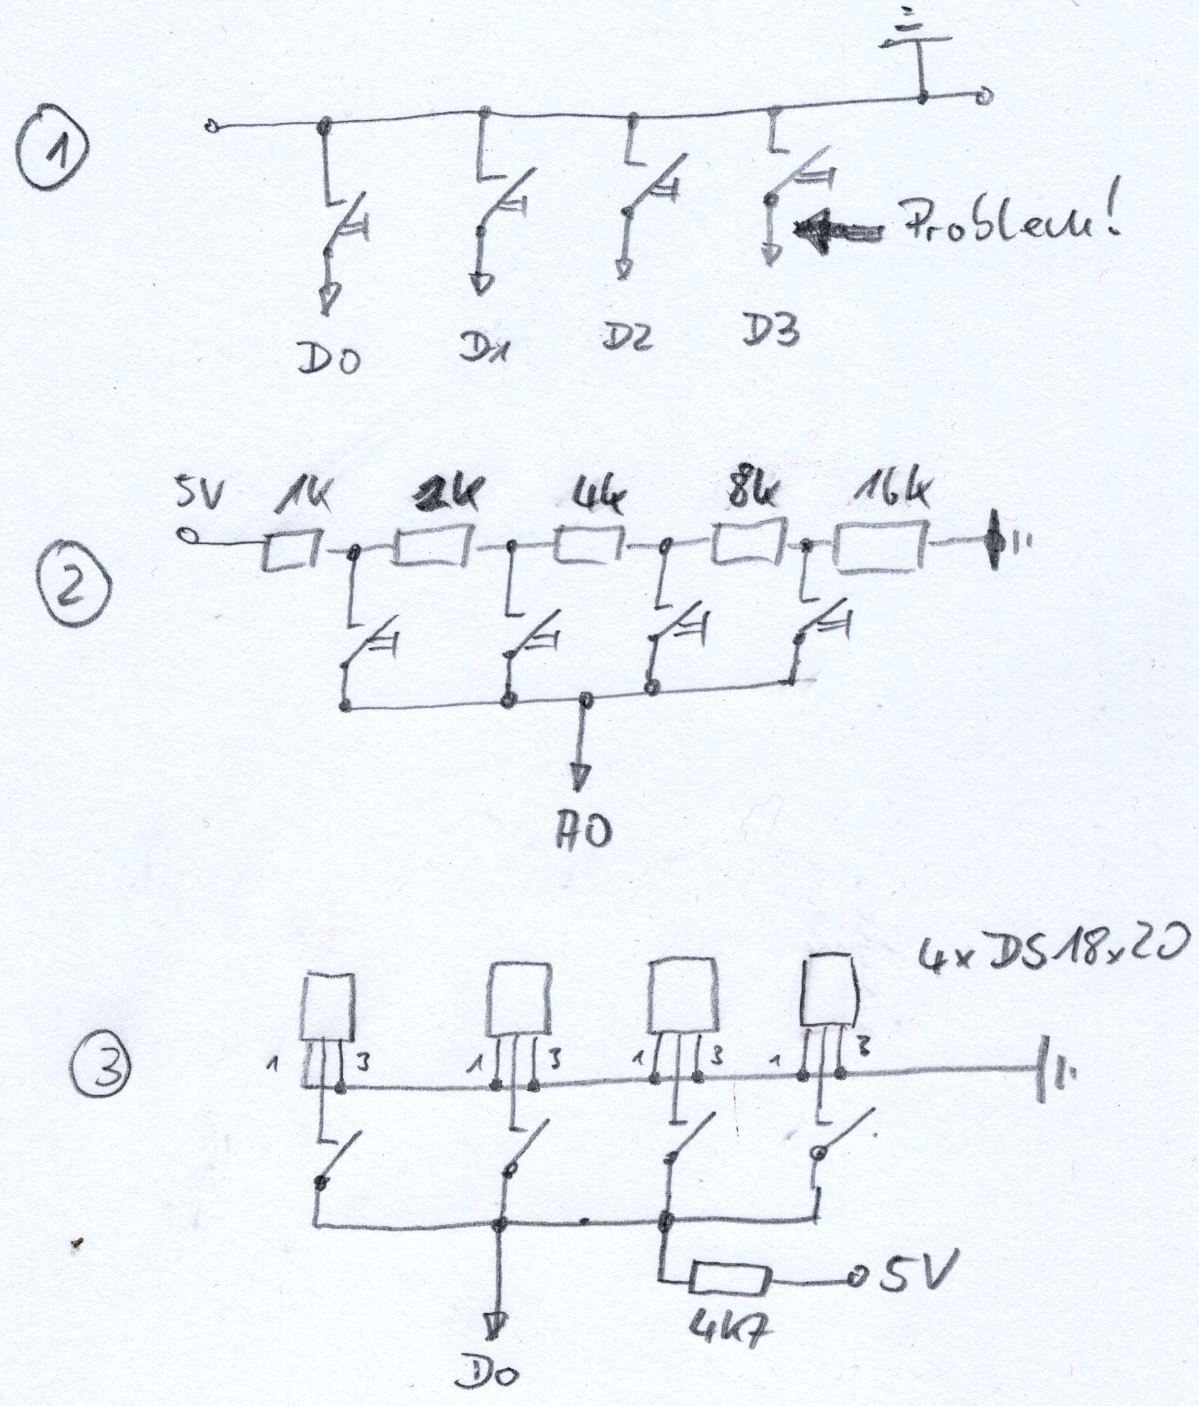 1
Problem!
D0
D1
D2
D3
5V
1k
2k
4k
8k
16k
2
A0
4x DS18x20
3
1
3
1
3
1
3
1
3
5V
4k7
D0